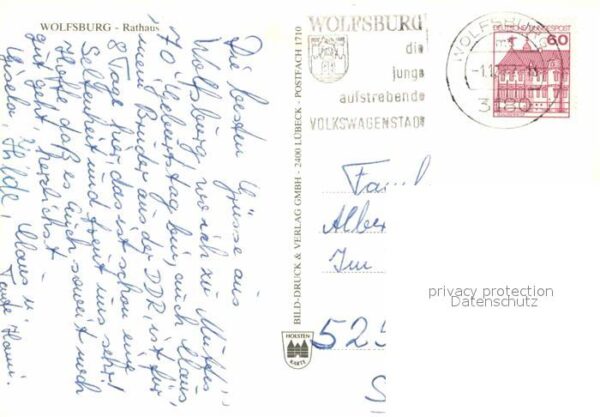 WOLFSBURG - Rathaus
Die besten Grüsse aus
Wolfsburg, wo ich zu Mutti's
70. Geburtstag bin, auch Klaus,
mein Bruder aus der DDR, ist für
8 Tage hier, das ist schon eine
Seltenheit und freut uns sehr!
Hoffe, daß es Euch soweit noch
gut geht, herzlichst
Gisela, Hilde, Klaus u.
Tante Hanni.
BILD-DRUCK & VERLAG GMBH - 2400 LÜBECK - POSTFACH 1710
HOLSTEN
KARTE
WOLFSBURG
die
junge
aufstrebende
VOLKSWAGENSTADT
WOLFSBURG
3180
DEUTSCHE BUNDESPOST
60
Fam
Alber
Im
525
privacy protection
Datenschutz